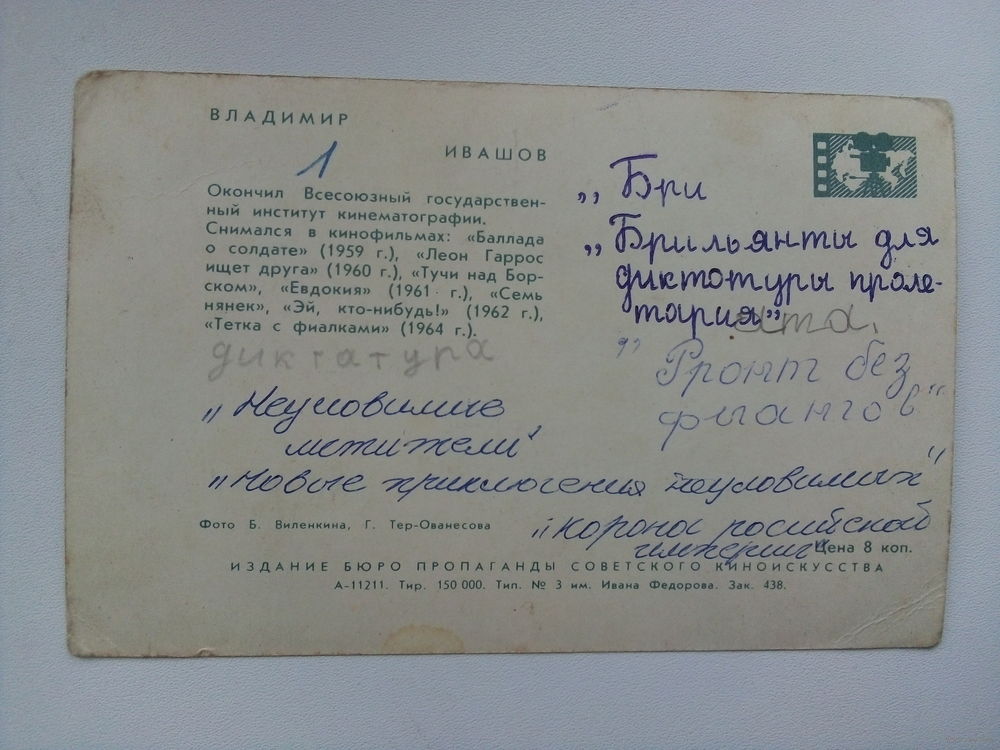 ВЛАДИМИР
ИВАШОВ
1
Окончил Всесоюзный государствен-
ный институт кинематографии.
Снимался в кинофильмах: «Баллада
о солдате» (1959 г.), «Леон Гаррос
ищет друга» (1960 г.), «Тучи над Бор-
ском», «Евдокия» (1961 г.), «Семь
нянек», «Эй, кто-нибудь!» (1962 г.),
«Тетка с фиалками» (1964 г.).
диктатура
„Бри
„Брильянты для
диктотуры проле-
тария” ата.
„Фронт без
флангов“
„Неуловимые
мстители“
„Новые приключения неуловимых“
„Корона росийской
империи“
Фото Б. Виленкина, Г. Тер-Ованесова
Цена 8 коп.
ИЗДАНИЕ БЮРО ПРОПАГАНДЫ СОВЕТСКОГО КИНОИСКУССТВА
А-11211. Тир. 150 000. Тип. № 3 им. Ивана Федорова. Зак. 438.